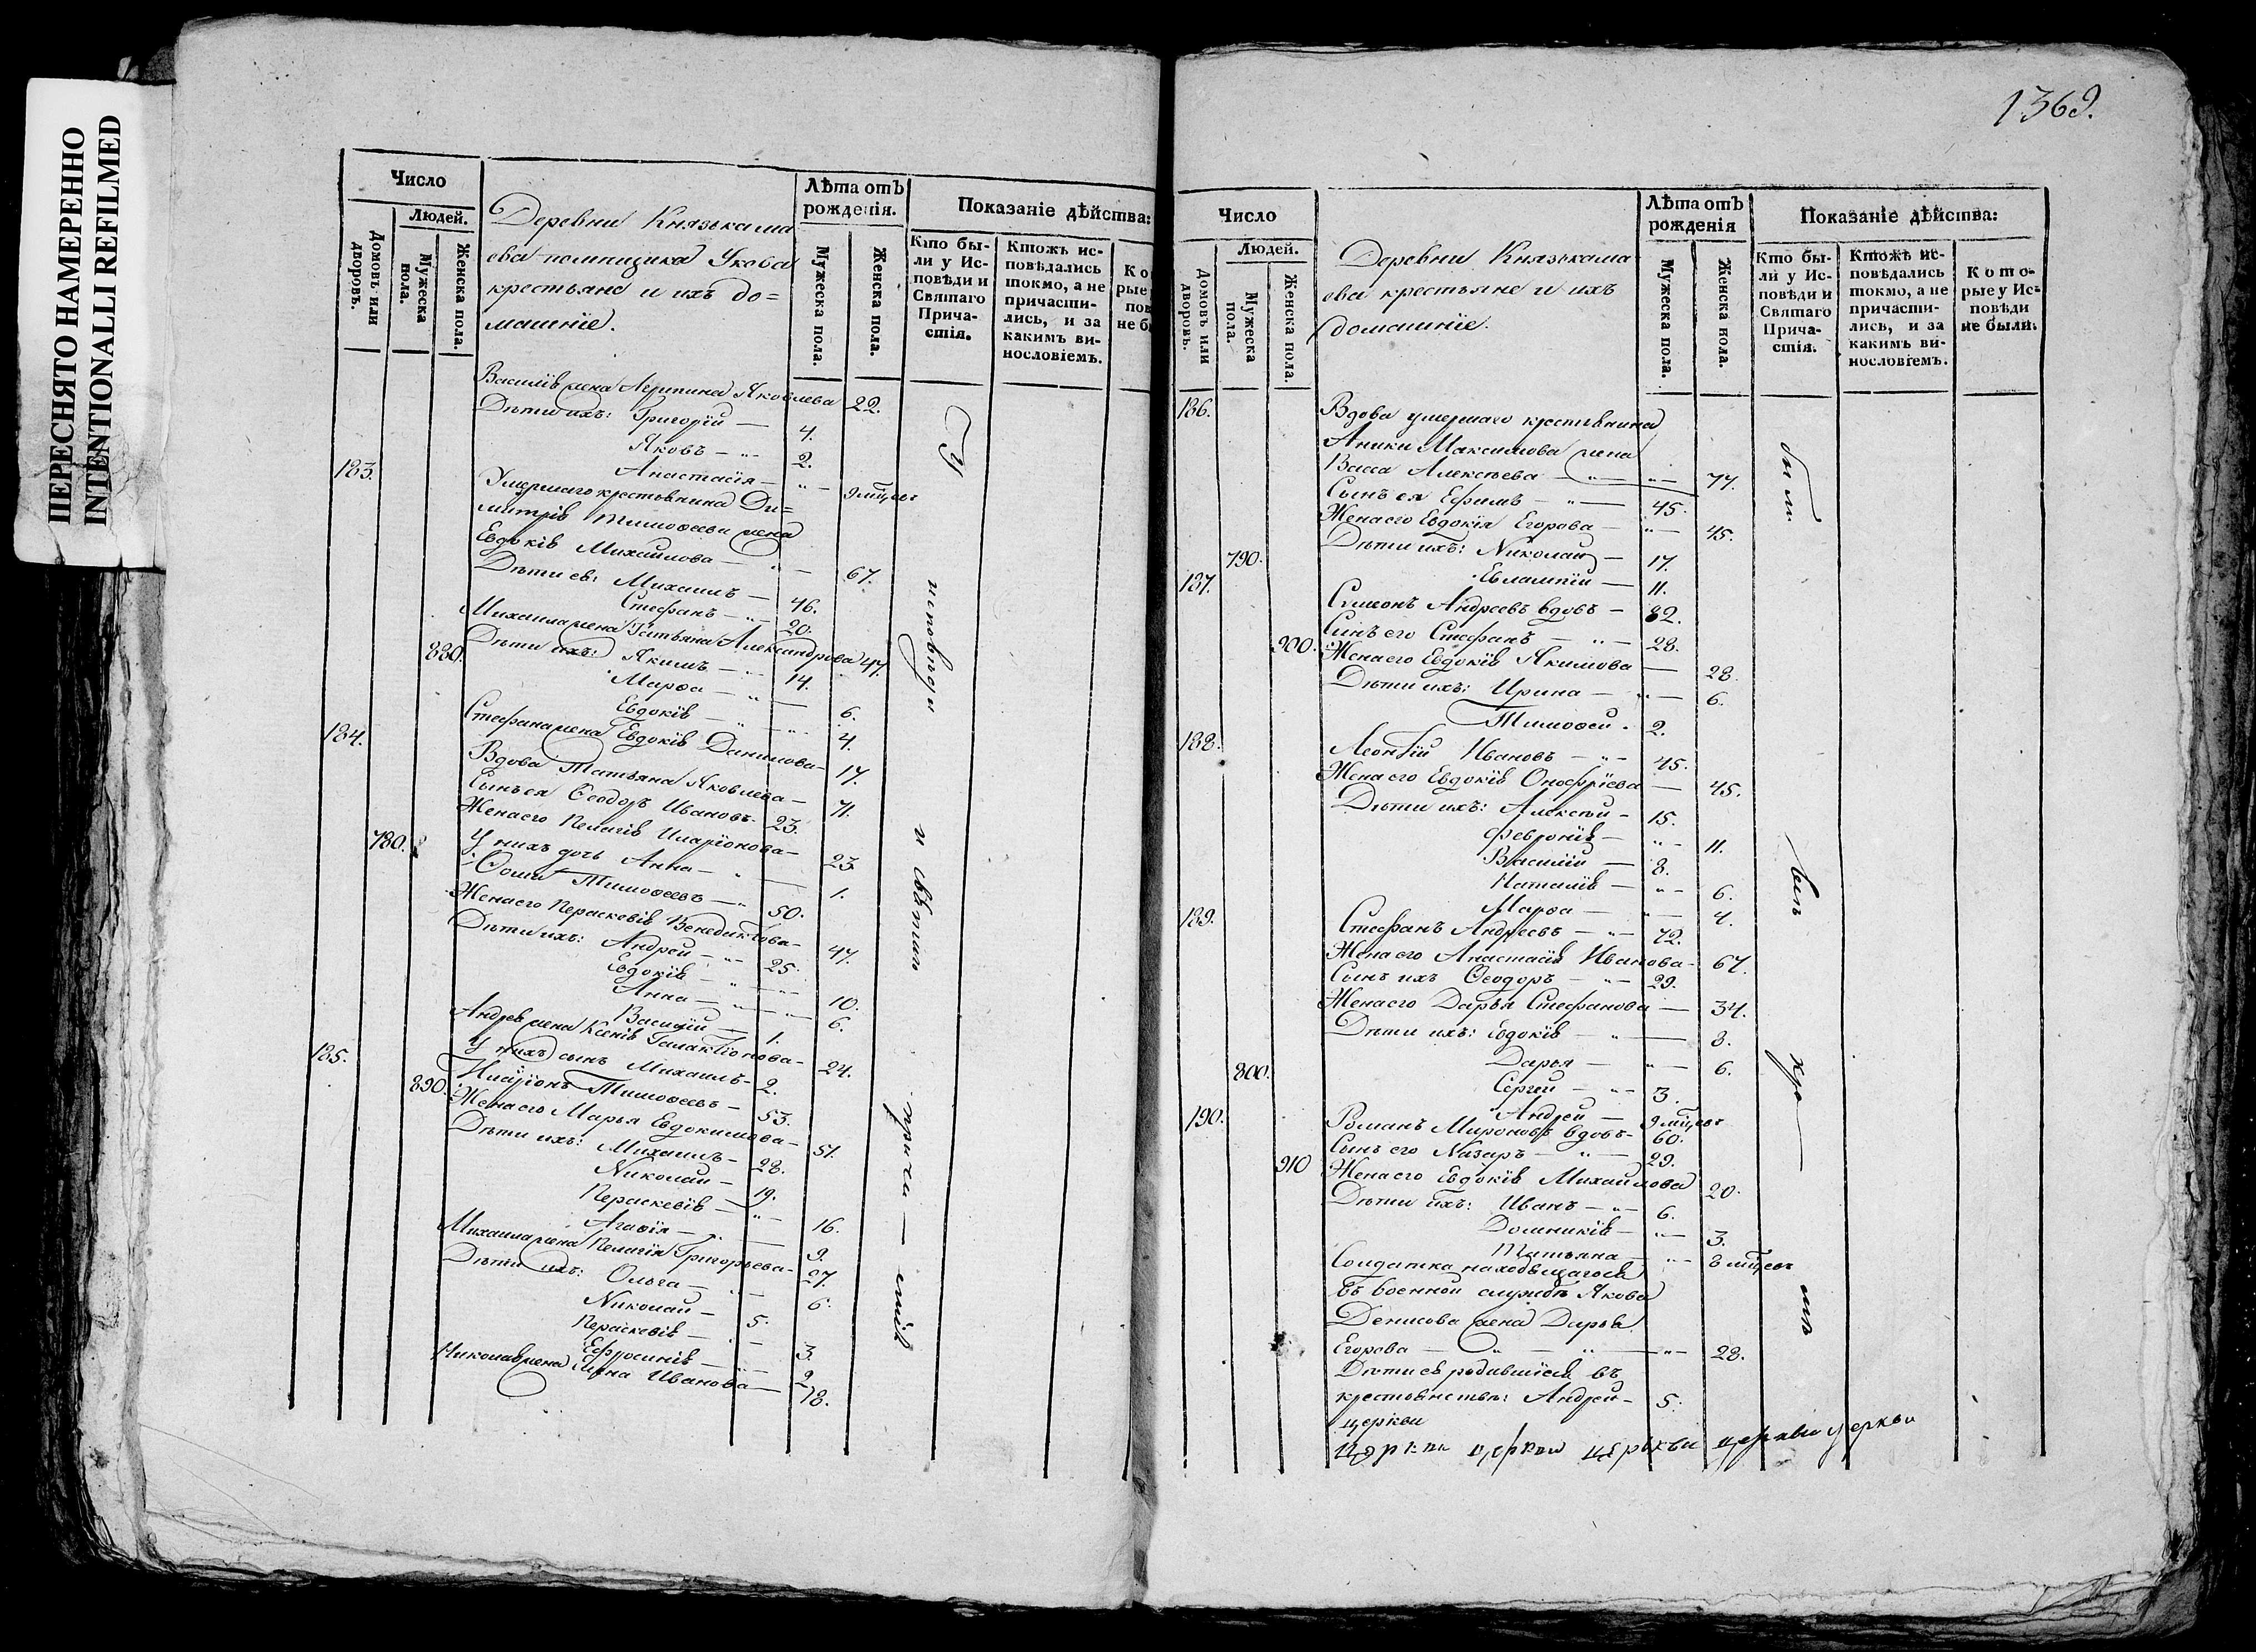 ПЕРЕСНЯТО НАМЕРЕННО
INTENTIONALLI REFILMED
Число
Людей.
Домовъ или дворовъ.
Мужеска пола.
Женска пола.
Деревни Княжкама
ева помѣщика
крестьяне и ихъ до=
машніе.
Лѣта отъ рожденія.
Мужеска пола.
Женска пола.
Показаніе дѣйства:
Кто бы-
ли у Ис-
повѣди и
Святаго
Прича-
стія.
Ктожъ ис-
повѣдались
токмо, а не
причасти-
лись, и за
какимъ ви-
нословіемъ.
Василія жена Агрипина Яковлева 22.
Дѣти ихъ: Григорій — 4.
Яковъ — 2.
Анастасія — 9 мцевъ
183. Умершаго крестьянина Ди=
митрія Тимоѳеева жена
Евдокія Михайлова — 67.
Дѣти ея: Михаилъ — 46.
Стефанъ — 20.
Михаила жена Татьяна Александрова 47.
880. Дѣти ихъ: Якимъ — 14.
Марѳа — 6.
Евдокія — 4.
Стефана жена Евдокія Данилова — 17.
184. Вдова Татьяна Яковлева — 71.
Сынъ ея Ѳеодоръ Ивановъ — 23.
Жена его Пелагія Иларіонова — 23
У нихъ дочь Анна — 1.
780. Ѳома Тимоѳеевъ — 50.
Жена его Параскевія Венедиктова — 47.
Дѣти ихъ: Андрей — 25.
Евдокія — 10.
Анна — 6.
Василій — 1.
Андрея жена Ксенія Галактіонова — 24.
У нихъ сынъ Михаилъ — 2.
185. Иларіонъ Тимоѳеевъ — 53.
890. Жена его Марья Евдокимова — 51.
Дѣти ихъ: Михаилъ — 28.
Николай — 19.
Параскевія — 16.
Агаѳія — 9.
Михаила жена Пелагія Григорьева — 27.
Дѣти ихъ: Ольга — 6.
Николай — 5.
Параскевія — 3.
Ефросинія — 2
Николая жена Ирина Иванова — 18.
У исповѣди и святаго прича — стія
1369.
Число
Людей.
Домовъ или дворовъ.
Мужеска пола.
Женска пола.
Деревни Княжкама
ева крестьяне и ихъ
домашніе.
Лѣта отъ рожденія
Мужеска пола.
Женска пола.
Показаніе дѣйства:
Кто бы-
ли у Ис-
повѣди и
Святаго
Прича-
стія.
Ктожъ ис-
повѣдались
токмо, а не
причасти-
лись, и за
какимъ ви-
нословіемъ.
Кото-
рые у Ис-
повѣди
не были.
186. Вдова умершаго крестьянина
Аники Максимова жена
Васса Алексѣева — 77.
Сынъ ея Ефимъ — 45.
Жена его Евдокія Егорова — 45.
Дѣти ихъ: Николай — 17.
790. Евлампій — 11.
187. Симеонъ Андреевъ вдовъ — 82.
Сынъ его Стефанъ — 28.
900. Жена его Евдокія Якимова — 28.
Дѣти ихъ: Ирина — 6.
Тимоѳей. 2.
188. Леонтій Ивановъ — 45.
Жена его Евдокія Онофріева — 45.
Дѣти ихъ: Алексѣй — 15.
Февронія — 11.
Василій — 8.
Наталія — 6.
Марѳа — 4.
189. Стефанъ Андреевъ — 72.
Жена его Анастасія Иванова — 67.
Сынъ ихъ Ѳеодоръ — 29.
Жена его Дарья Стефанова — 34.
Дѣти ихъ: Евдокія — 8.
Дарья — 6.
800. Сергей — 3.
Андрей — 9 мцевъ
190. Романъ Мироновъ вдовъ — 60.
Сынъ его Назаръ — 29.
910 Жена его Евдокія Михайлова 20.
Дѣти ихъ: Иванъ — 6.
Домникія — 3.
Татьяна — 8 мцевъ
Солдатка находящагося
въ военной службѣ Якова
Денисова жена Дарья
Егорова — 28.
Дѣти ея родившіеся въ
крестьянствѣ: Андрей — 5.
церкви
церкви церкви церькви церкви церкви
были